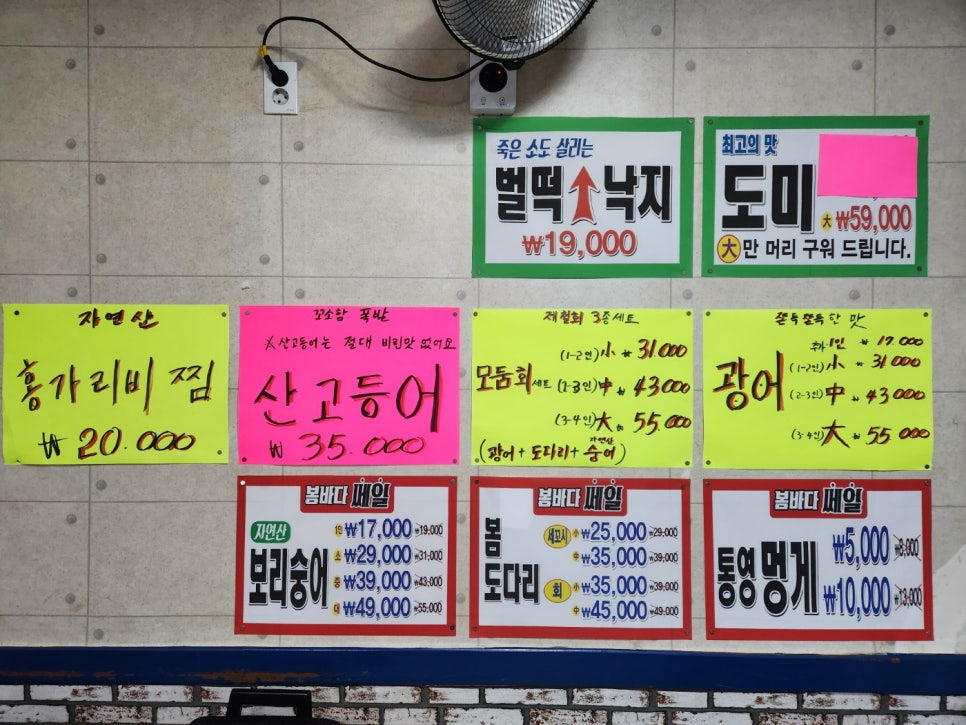 죽은 소도 살리는
벌떡 낙지
₩19,000
최고의 맛
도미
大 ₩59,000
大만 머리 구워 드립니다.
자연산
홍가리비 찜
₩ 20.000
꼬소함 폭발
※산고등어는 절대 비린맛 없어요
산고등어
₩ 35.000
제철회 3종세트
모둠회 세트
(1-2인) 小 ₩ 31.000
(2-3인) 中 ₩ 43.000
(3-4인) 大 ₩ 55.000
(광어+도다리+자연산 숭어)
쫀득쫀득한 맛
광어
추가 1인 ₩ 17.000
(1-2인) 小 ₩ 31.000
(2-3인) 中 ₩ 43.000
(3-4인) 大 ₩ 55.000
봄바다 쎄일
자연산
보리숭어
1인 ₩17,000 ₩19,000
소 ₩29,000 ₩31,000
중 ₩39,000 ₩43,000
대 ₩49,000 ₩55,000
봄바다 쎄일
봄
도다리
세꼬시 小 ₩25,000 ₩29,000
中 ₩35,000 ₩39,000
회 小 ₩35,000 ₩39,000
中 ₩45,000 ₩49,000
봄바다 쎄일
통영 멍게
₩5,000 ₩8,000
₩10,000 ₩13,000